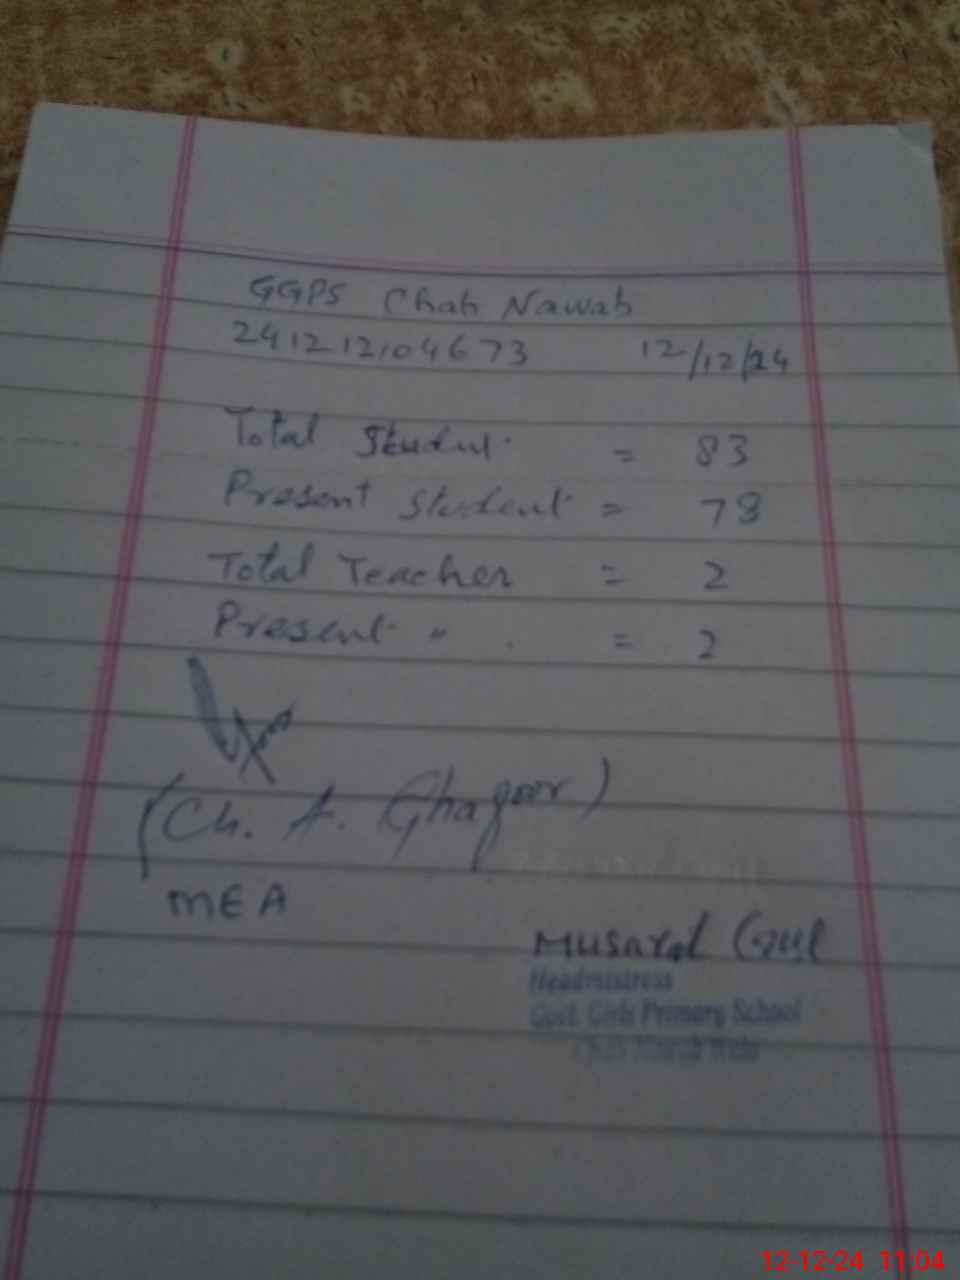 GGPS Chah Nawab
241212104673 12/12/24
Total Student = 83
Present Student = 78
Total Teacher = 2
Present " = 2
(Ch. A. Ghafoor)
MEA
Musarat Gul
Headmistress
Govt. Girls Primary School
Chah Nawab
12-12-24 11:04